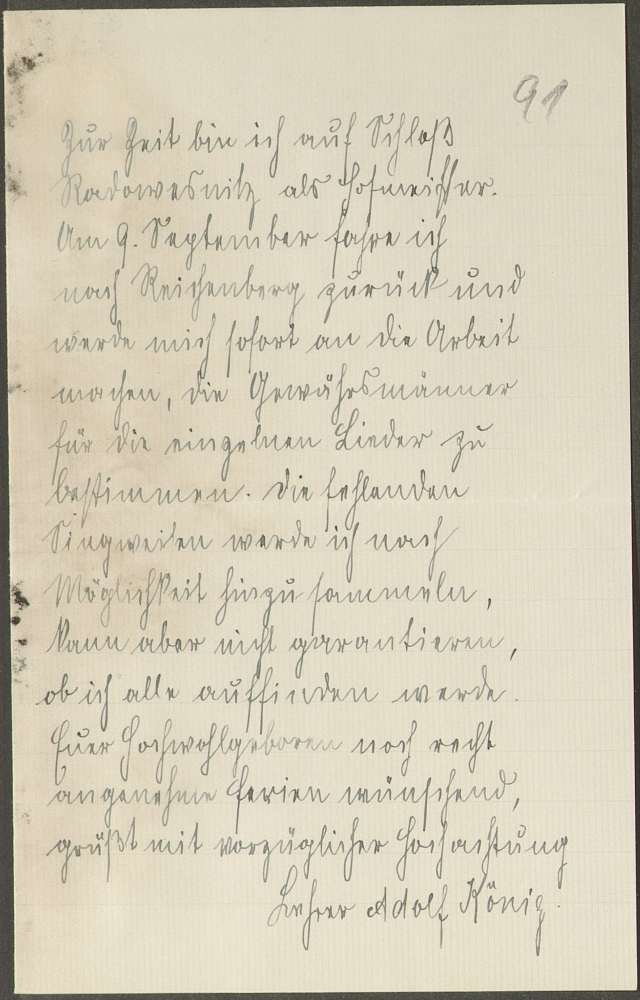 91
Zur Zeit bin ich auf Schloß
Radowesnitz als Hofmeister.
Am 9. September fahre ich
nach Reichenberg zurück und
werde mich sofort an die Arbeit
machen, die Gewährsmänner
für die einzelnen Lieder zu
bestimmen. Die fehlenden
Singweisen werde ich nach
Möglichkeit hinzu sammeln,
kann aber nicht garantieren,
ob ich alle auffinden werde.
Euer Hochwohlgeboren noch recht
angenehme Ferien wünschend,
grüßt mit vorzüglicher Hochachtung
Lehrer Adolf König.